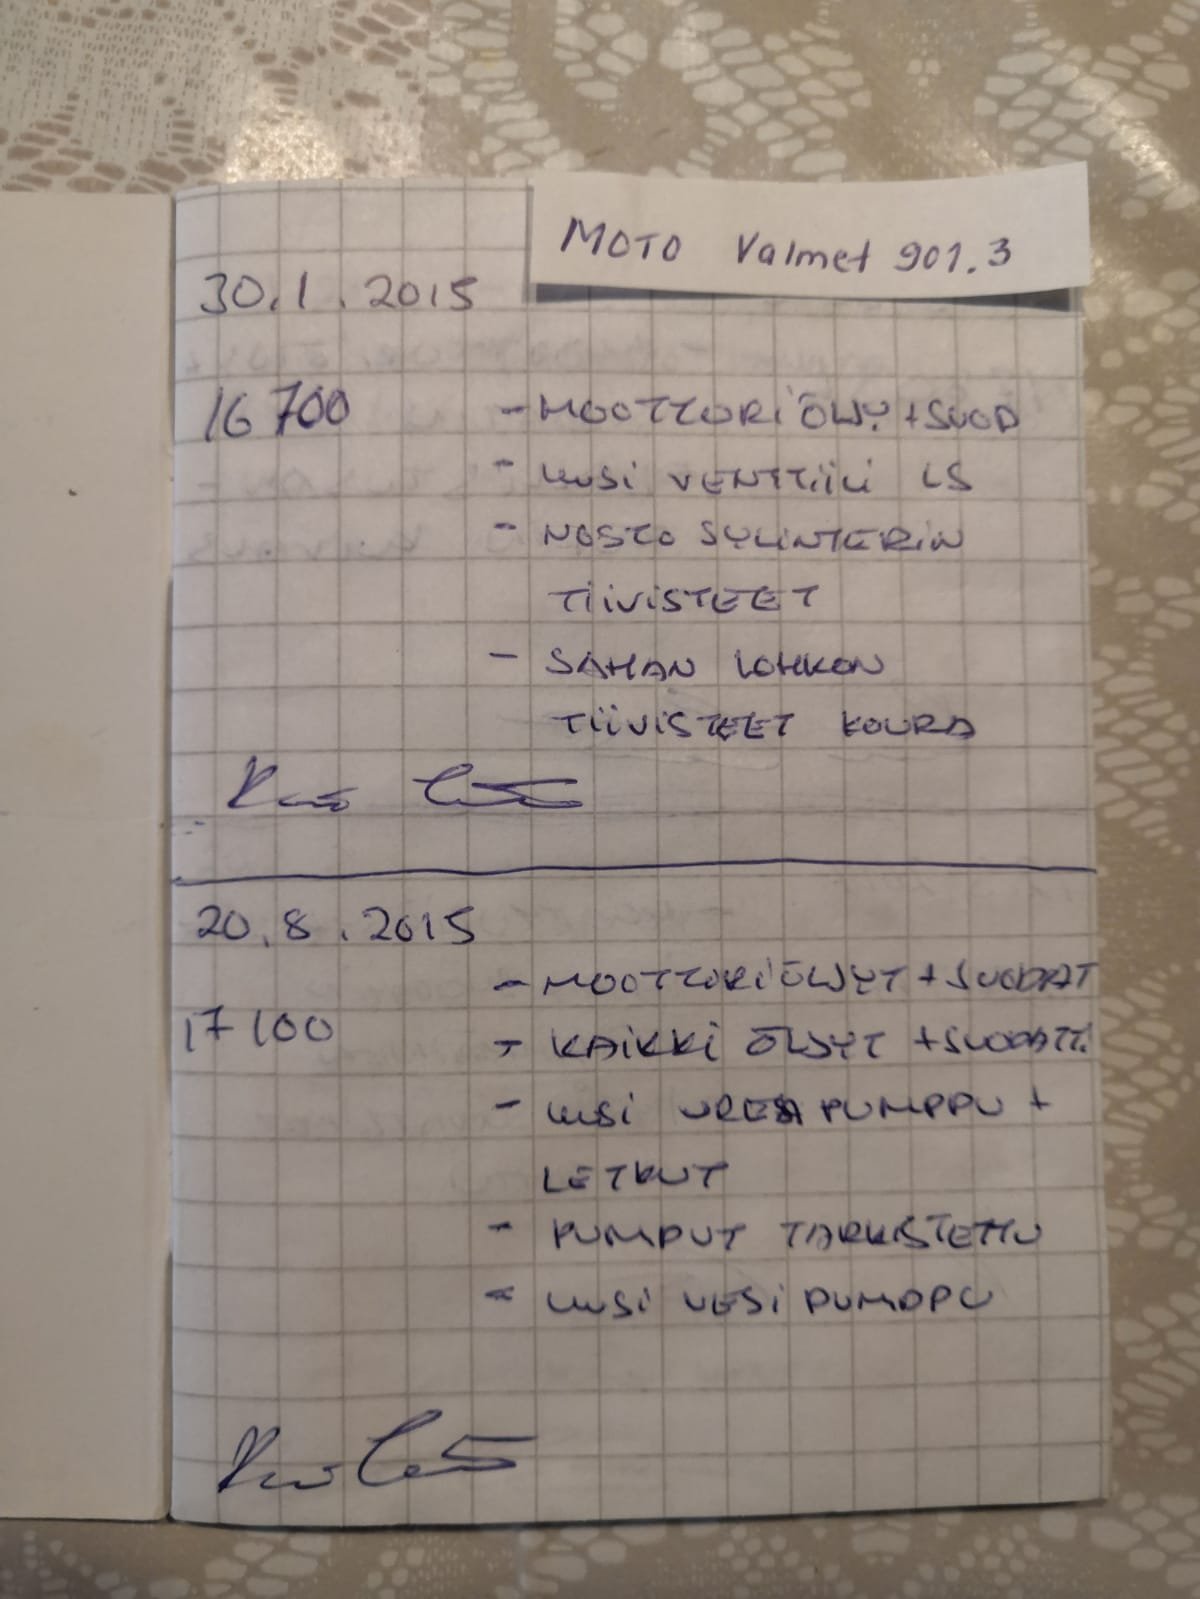 MOTO Valmet 901.3
30.1.2015
16 700 - MOOTTORIÖLJY + SUOD
- UUSI VENTTIILI LS
- NOSTO SYLINTERIN
TIIVISTEET
- SAHAN LOHKON
TIIVISTEET KOURA
20.8.2015
- MOOTTORIÖLJYT + SUODAT
17 100 - KAIKKI ÖLJYT + SUODATT.
- UUSI UREA PUMPPU +
LETKUT
- PUMPUT TARKISTETTU
- UUSI VESIPUMPPU